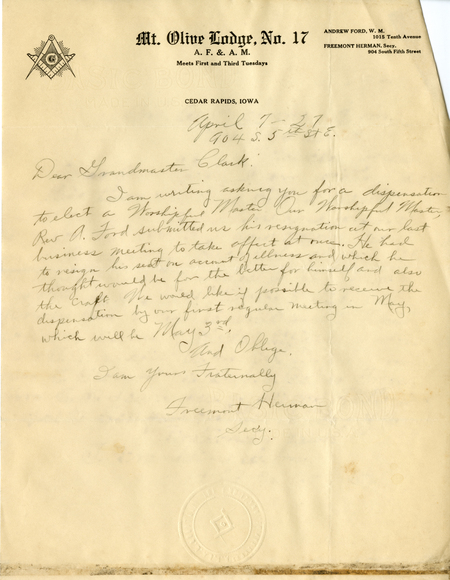 Mt. Olive Lodge, No. 17
A. F. & A. M.
Meets First and Third Tuesdays
ANDREW FORD, W. M.
1015 Tenth Avenue
FREEMONT HERMAN, Secy.
904 South Fifth Street
CEDAR RAPIDS, IOWA
April 7-27
904 S. 5th St E.
Dear Grandmaster Clark:
I am writing asking you for a dispensation
to elect a Worshipful Master. Our Worshipful Master,
Rev A. Ford submitted us his resignation at our last
business meeting to take affect at once. He had
to resign his seat on account of illness and which he
thought would be for the better for himself and also
the Craft. We would like if possible to receive the
dispensation by our first regular meeting in May,
which will be May 3rd.
And Oblige.
I am Yours Fraternally
Freemont Herman
Secy.